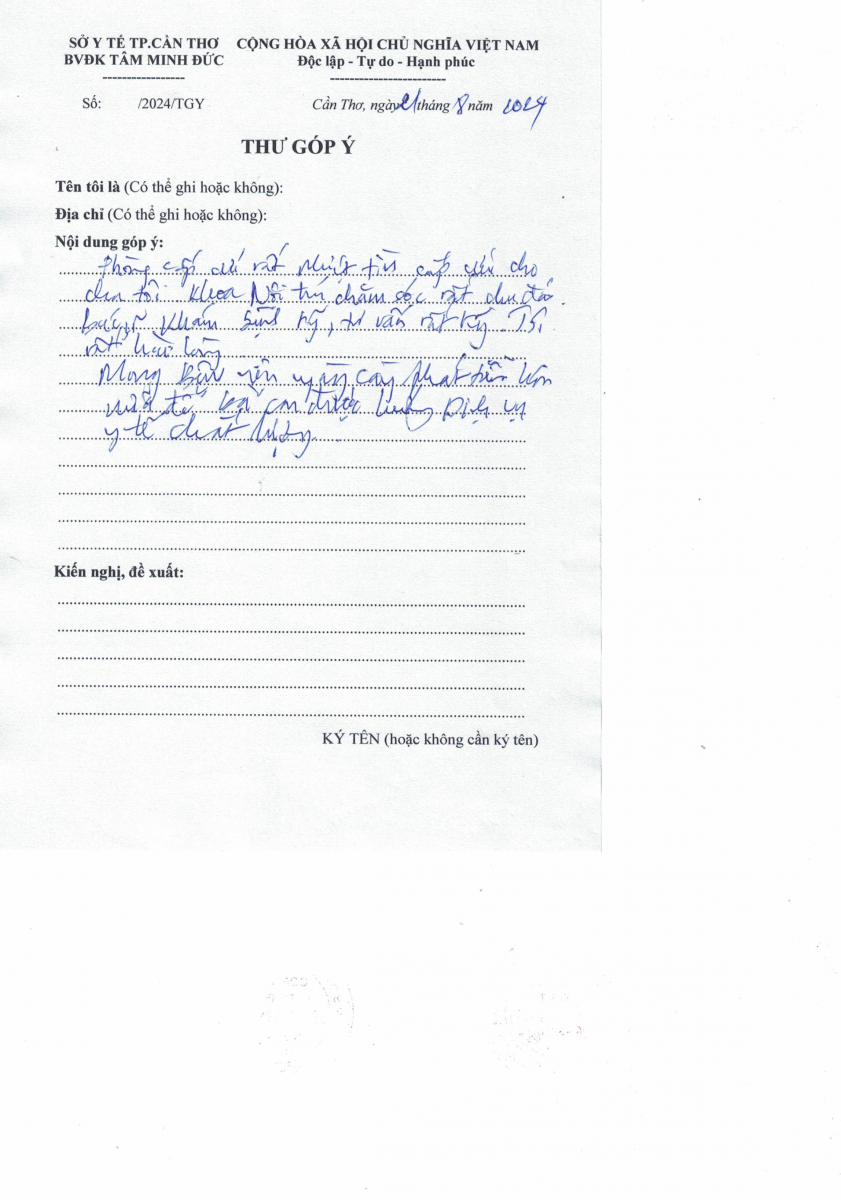 SỞ Y TẾ TP.CẦN THƠ CỘNG HÒA XÃ HỘI CHỦ NGHĨA VIỆT NAM
BVĐK TÂM MINH ĐỨC Độc lập - Tự do - Hạnh phúc
Số: /2024/TGY Cần Thơ, ngày 21 tháng 8 năm 2024
THƯ GÓP Ý
Tên tôi là (Có thể ghi hoặc không):
Địa chỉ (Có thể ghi hoặc không):
Nội dung góp ý:
Phòng cấp cứu rất nhiệt tình cấp cứu cho
cha tôi. Khoa Nội trú chăm sóc rất chu đáo.
bác sĩ khám bệnh kỹ, tư vấn rất kỹ. Tôi
rất hài lòng
Mong Bệnh viện ngày càng phát triển hơn
nữa để bà con được hưởng Dịch vụ
y tế chất lượng.
Kiến nghị, đề xuất:
KÝ TÊN (hoặc không cần ký tên)